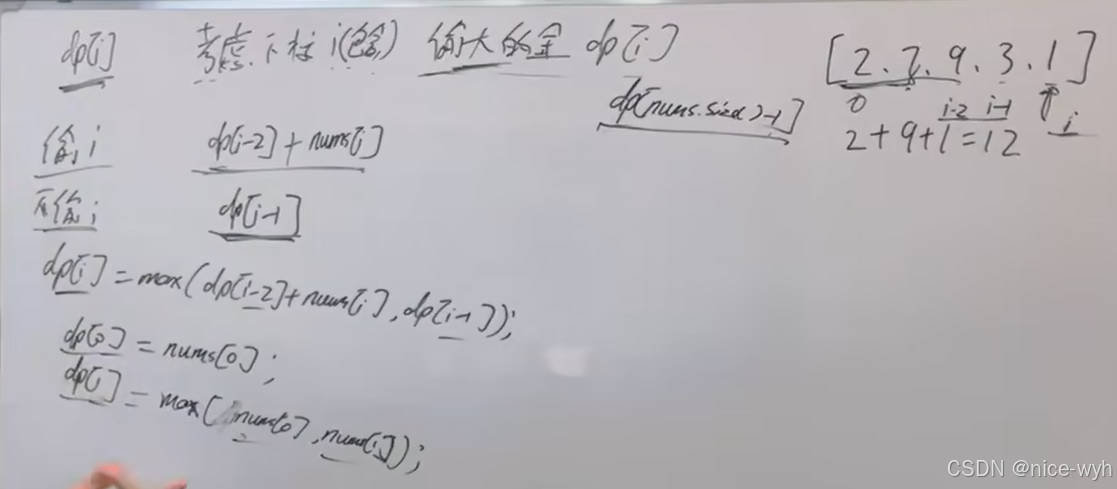 dp[i] 考虑下标i(包含) 偷大的金 dp[i]
[2, 7, 9, 3, 1]
dp[nums.size()-1]
0 i-2 i-1 ↑ i
2+9+1=12
偷i dp[i-2]+nums[i]
不偷i dp[i-1]
dp[i]=max(dp[i-2]+nums[i], dp[i-1]);
dp[0]=nums[0];
dp[1]=max(nums[0], nums[1]);
CSDN @nice-wyh